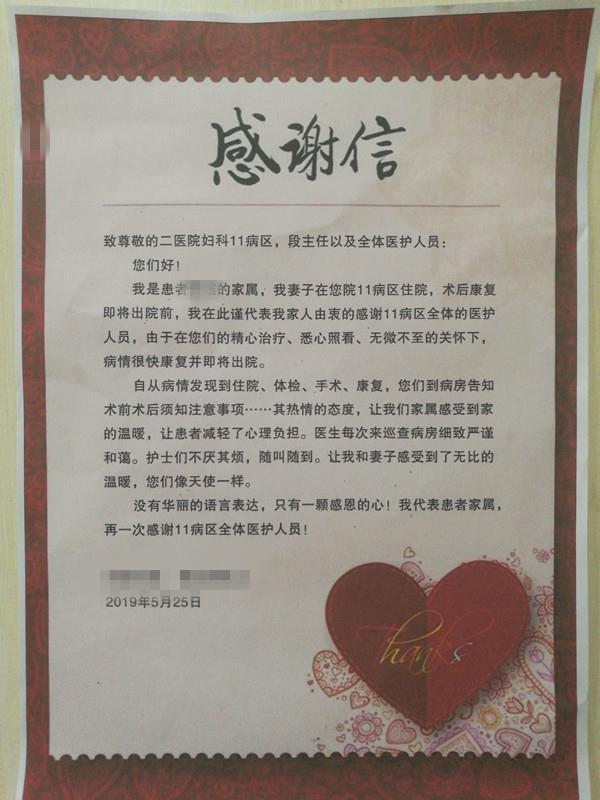 感谢信
致尊敬的二医院妇科11病区，段主任以及全体医护人员：
您们好！
我是患者的家属，我妻子在您院11病区住院，术后康复
即将出院前，我在此谨代表我家人由衷的感谢11病区全体的医护
人员，由于在您们的精心治疗、悉心照看、无微不至的关怀下，
病情很快康复并即将出院。
自从病情发现到住院、体检、手术、康复，您们到病房告知
术前术后须知注意事项……其热情的态度，让我们家属感受到家
的温暖，让患者减轻了心理负担。医生每次来巡查病房细致严谨
和蔼。护士们不厌其烦，随叫随到。让我和妻子感受到了无比的
温暖，您们像天使一样。
没有华丽的语言表达，只有一颗感恩的心！我代表患者家属，
再一次感谢11病区全体医护人员！
2019年5月25日
Thanks